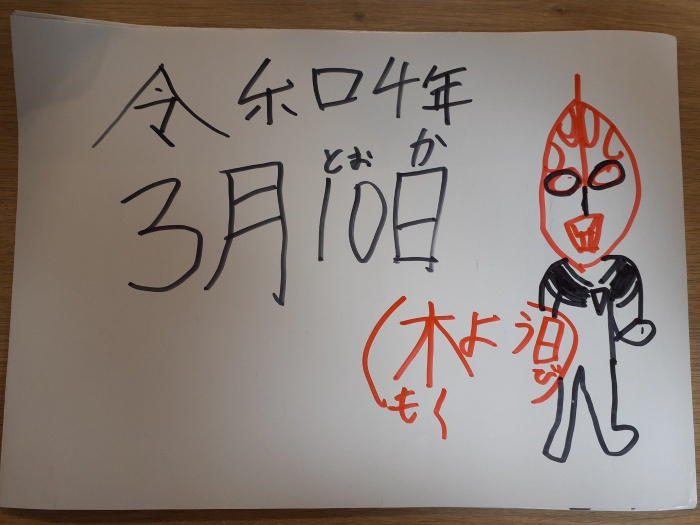 令和4年
3月10日
とおか
(木よう日
もく び)